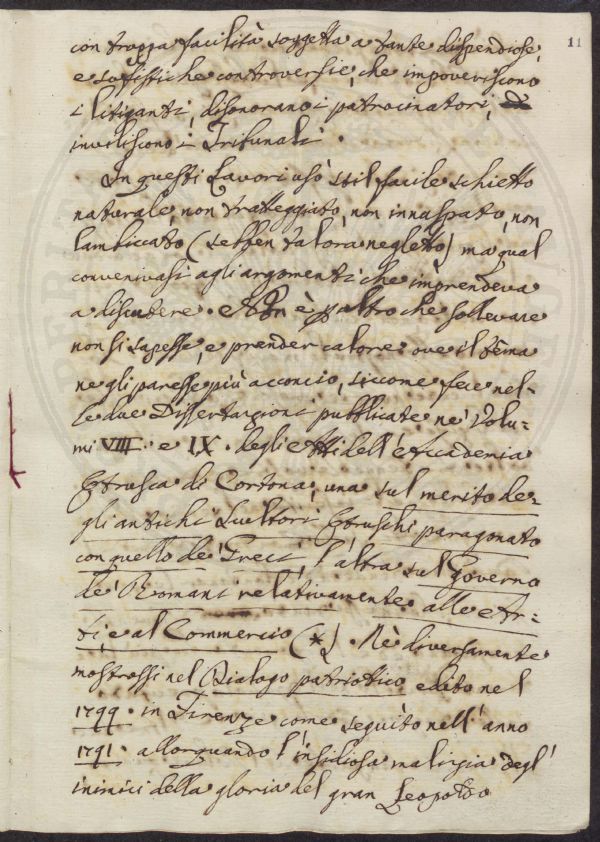 11
con troppa facilità soggetta a tante dispendiose,
e sofistiche controversie, che impoveriscono
i litiganti, disonorano i patrocinatori,
inviliscono i Tribunali.
In questi Lavori usò stil facile schietto
naturale, non tratteggiato, non innaspato, non
lambiccato (sebben talora negletto) ma qual
convenivasi agli argomenti che imprendeva
a discutere. Non è per altro che sollevare
non si sapesse, e prender calore ove il tema
ne gli paresse più acconcio, siccome fece nel-
le due Dissertazioni pubblicate ne' Volu-
mi VIII. e IX. degli Atti dell'Accademia
Etrusca di Cortona, una sul merito de-
gli antichi Scultori Etruschi paragonato
con quello de' Greci, l'altra sul Governo
de' Romani relativamente alle Ar-
ti e al Commercio (*). Nè diversamente
mostrossi nel Dialogo patriotico edito nel
1799. in Firenze come seguito nell'anno
1791. allorquando l'insidiosa malizia degl'
inimici della gloria del gran Leopoldo